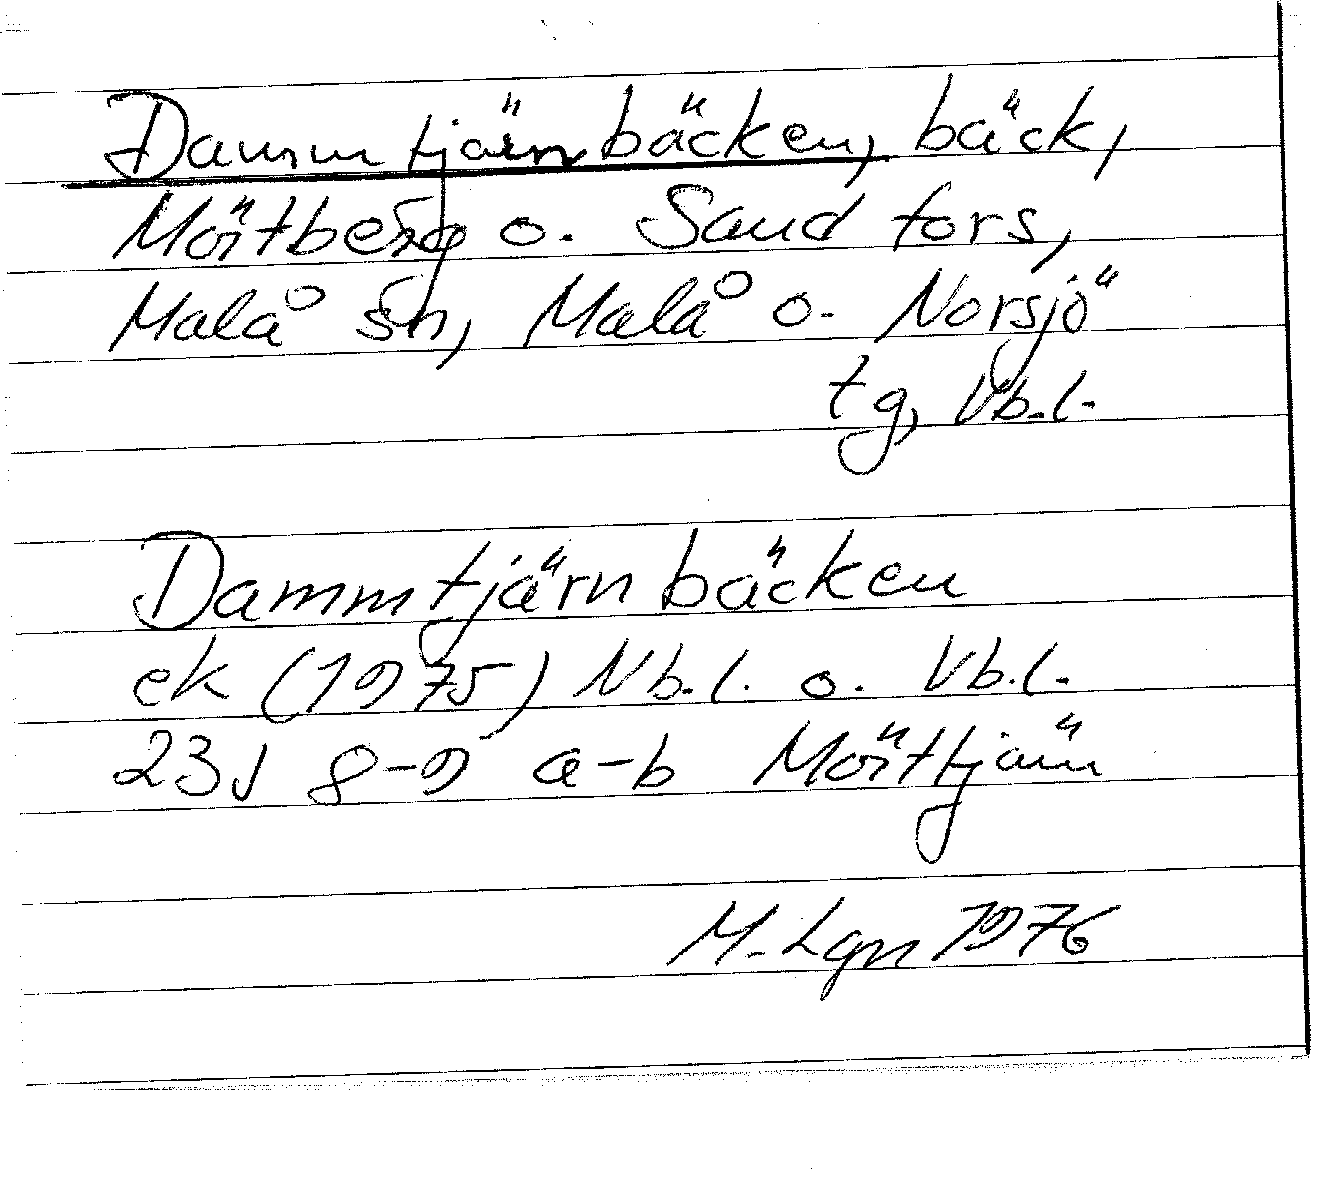 Dammtjärnbäcken, bäck,
Mörtberg o. Sandfors,
Malå sn, Malå o. Norsjö
tg, Vb.l.
Dammtjärnbäcken
ek (1975) Nb.l. o. Vb.l.
23J 8-9 a-b Mörttjärn
M. Lgn 1976